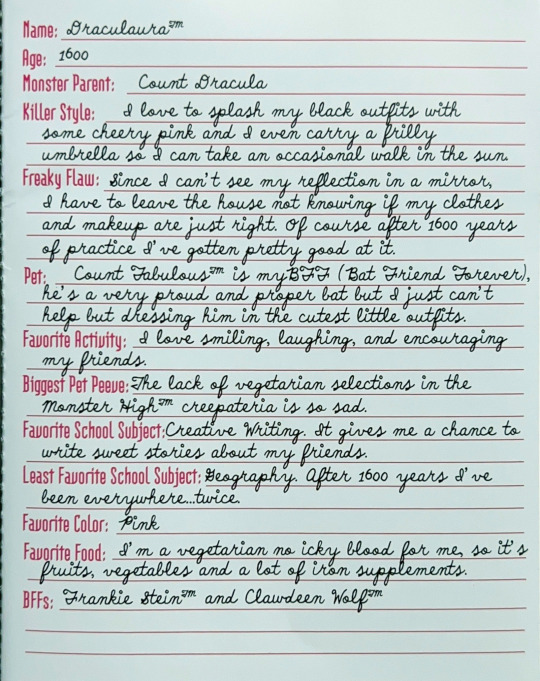 Name: Draculaura™
Age: 1600
Monster Parent: Count Dracula
Killer Style: I love to splash my black outfits with
some cheery pink and I even carry a frilly
umbrella so I can take an occasional walk in the sun.
Freaky Flaw: Since I can't see my reflection in a mirror,
I have to leave the house not knowing if my clothes
and makeup are just right. Of course after 1600 years
of practice I've gotten pretty good at it.
Pet: Count Fabulous™ is my BFF (Bat Friend Forever),
he's a very proud and proper bat but I just can't
help but dressing him in the cutest little outfits.
Favorite Activity: I love smiling, laughing, and encouraging
my friends.
Biggest Pet Peeve: The lack of vegetarian selections in the
Monster High™ creepateria is so sad.
Favorite School Subject: Creative Writing. It gives me a chance to
write sweet stories about my friends.
Least Favorite School Subject: Geography. After 1600 years I've
been everywhere...twice.
Favorite Color: Pink
Favorite Food: I'm a vegetarian no icky blood for me, so it's
fruits, vegetables and a lot of iron supplements.
BFFs: Frankie Stein™ and Clawdeen Wolf™